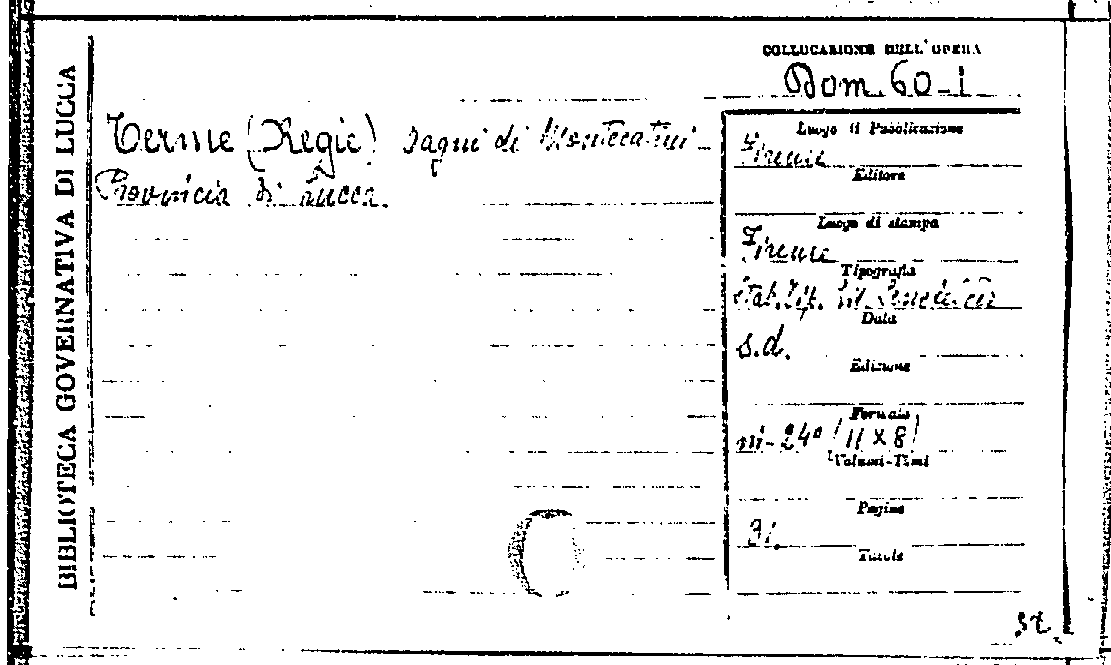 BIBLIOTECA GOVERNATIVA DI LUCCA
COLLOCAZIONE DELL'OPERA
Dom. 60-1
Terme (Regie) Bagni di Montecatini -
Provincia di Lucca.
Luogo di Pubblicazione
Firenze
Editore
Luogo di stampa
Firenze
Tipografia
Stab. Tip. Lit.
Data
s.d.
Edizione
Formato
in-24° (11 x 8)
Volumi-Tomi
Pagine
31.
Tavole